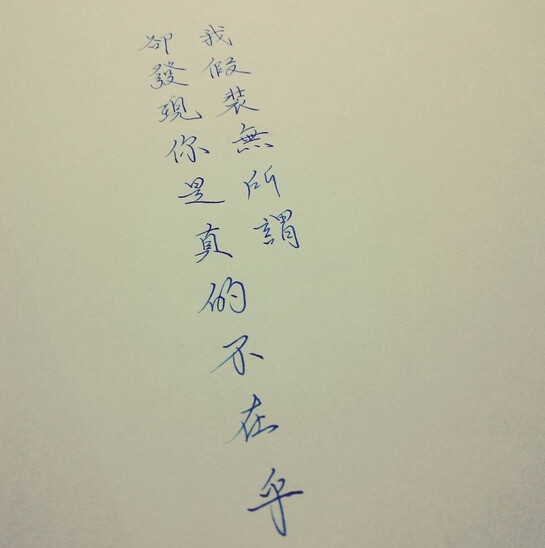 我假裝無所謂
卻發現你是真的不在乎